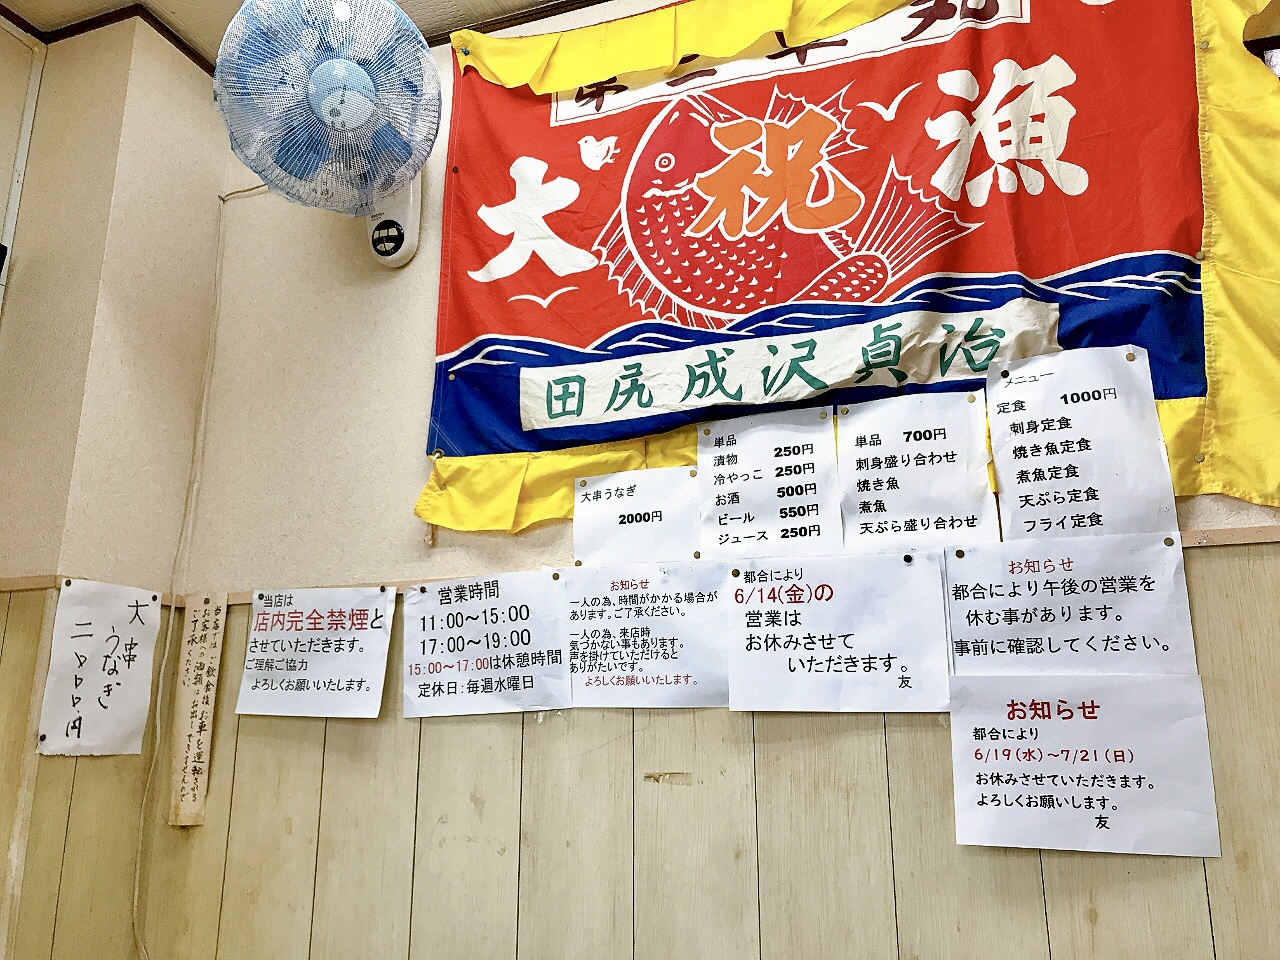 大漁
祝
田尻 成沢貞治
メニュー
定食 1000円
刺身定食
焼き魚定食
煮魚定食
天ぷら定食
フライ定食
単品 700円
刺身盛り合わせ
焼き魚
煮魚
天ぷら盛り合わせ
単品
漬物 250円
冷やっこ 250円
お酒 500円
ビール 550円
ジュース 250円
大串うなぎ
2000円
大串
うなぎ
二〇〇〇円
当店ではご飲食後お車を運転される
お客様への酒類はお出しできませんので
ご了承ください
当店は
店内完全禁煙と
させていただきます。
ご理解ご協力
よろしくお願いいたします。
営業時間
11:00～15:00
17:00～19:00
15:00～17:00は休憩時間
定休日：毎週水曜日
お知らせ
一人の為、時間がかかる場合が
あります。ご了承ください。
一人の為、来店時
気づかない事もあります。
声を掛けていただけると
ありがたいです。
よろしくお願いいたします。
都合により
6/14(金)の
営業は
お休みさせて
いただきます。
友
お知らせ
都合により午後の営業を
休む事があります。
事前に確認してください。
お知らせ
都合により
6/19(水)～7/21(日)
お休みさせていただきます。
よろしくお願いします。
友